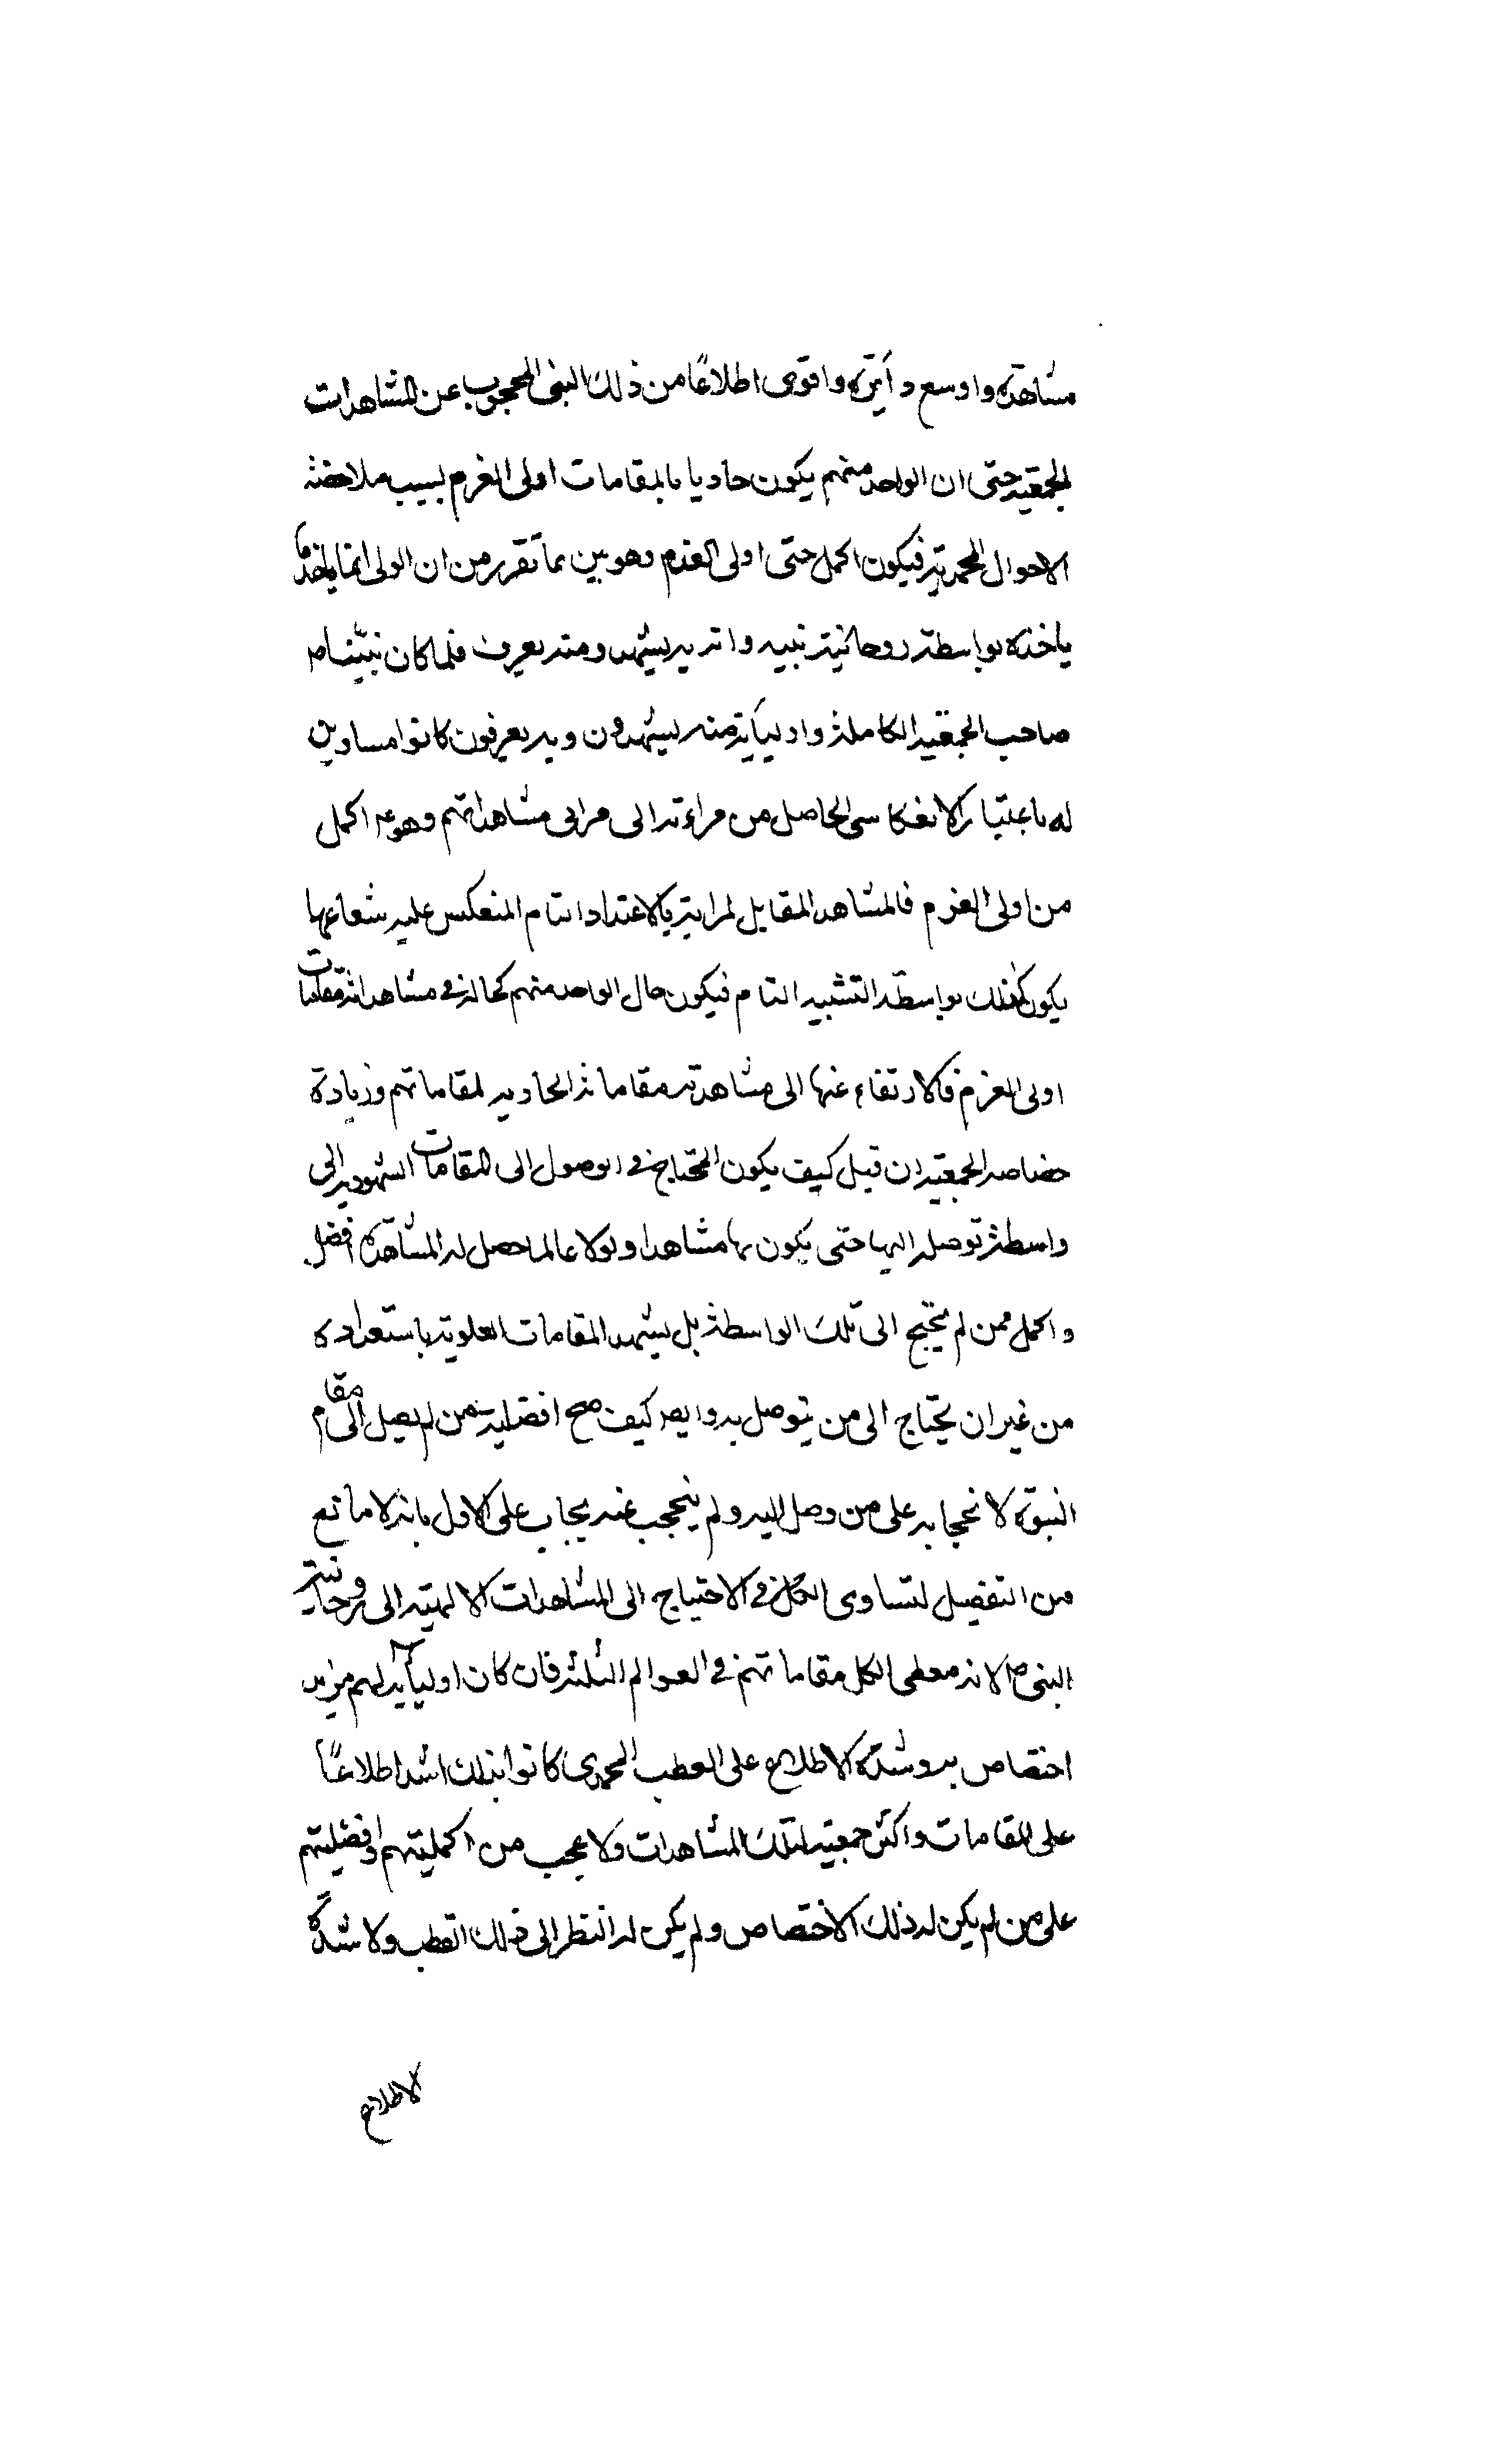 مشاهدة واوسع دائرة واقوى اطلاعًا من ذلك النبى المحجوب عن المشاهدات
الجمعية حتى ان الواحد منهم يكون حاويا بالمقامات اولى العزم بسبب ملاحظة
الاحوال المحمدية فيكون اكمل حتى اولى العزم وهو بين مما تقرر من ان الولى انما ياخذ ما
ياخذه بواسطة روحانية نبيه وانه به يشهد ومنه يعرف فلما كان نبيّنا ص
صاحب الجمعية الكاملة واوليائه منه يشهدون وبه يعرفون كانوا مساوين
له باعتبار الانعكاس الحاصل من مراءته الى مرايى مشاهداتهم وهو ع اكمل
من اولى العزم فالمشاهد المقابل لمرايته بالاعتداد التام المنعكس عليه شعاعها
يكون كذلك بواسطة التشبيه التام فيكون حال الواحد منهم كحاله فى مشاهداته مقامات
اولى العزم فالارتفاء عنها الى مشاهدته مقاماته الحاويه لمقاماتهم وزيادة
خصاصه الجمعية ان قيل كيف يكون المحتاج فى الوصول الى المقامات الشهوديه الى
واسطة توصله اليها حتى يكون بها مشاهدا ولولاها لما حصل له المشاهدة افضل
واكمل ممن لم يحتج الى تلك الواسطة بل يشهد المقامات العلوية باستعداده
من غير ان يحتاج الى من يتوصل به وايضا كيف صح افضلية من لم يصل الى مقام
النبوة لانحجابه على من وصل اليه ولم ينحجب عنه يجاب على الاول بانه لا مانع
من التفضيل لتساوى الكل فى الاحتياج الى المشاهدات الالهية الى روحانية
النبى ص لانه معطى الكل مقاماتهم فى العوالم الثلثة فان كان اوليائه لهم مزيد
اختصاص به وشدة الاطلاع على القطب المحمدى كانوا بذلك اشد اطلاعًا
على المقامات واكثر جمعية لتلك المشاهدات ولا عجب من اكمليتهم وافضليتهم
على من لم يكن له ذلك الاختصاص ولم يكن له النظر الى ذلك القطب ولا شدة
الاطلاع